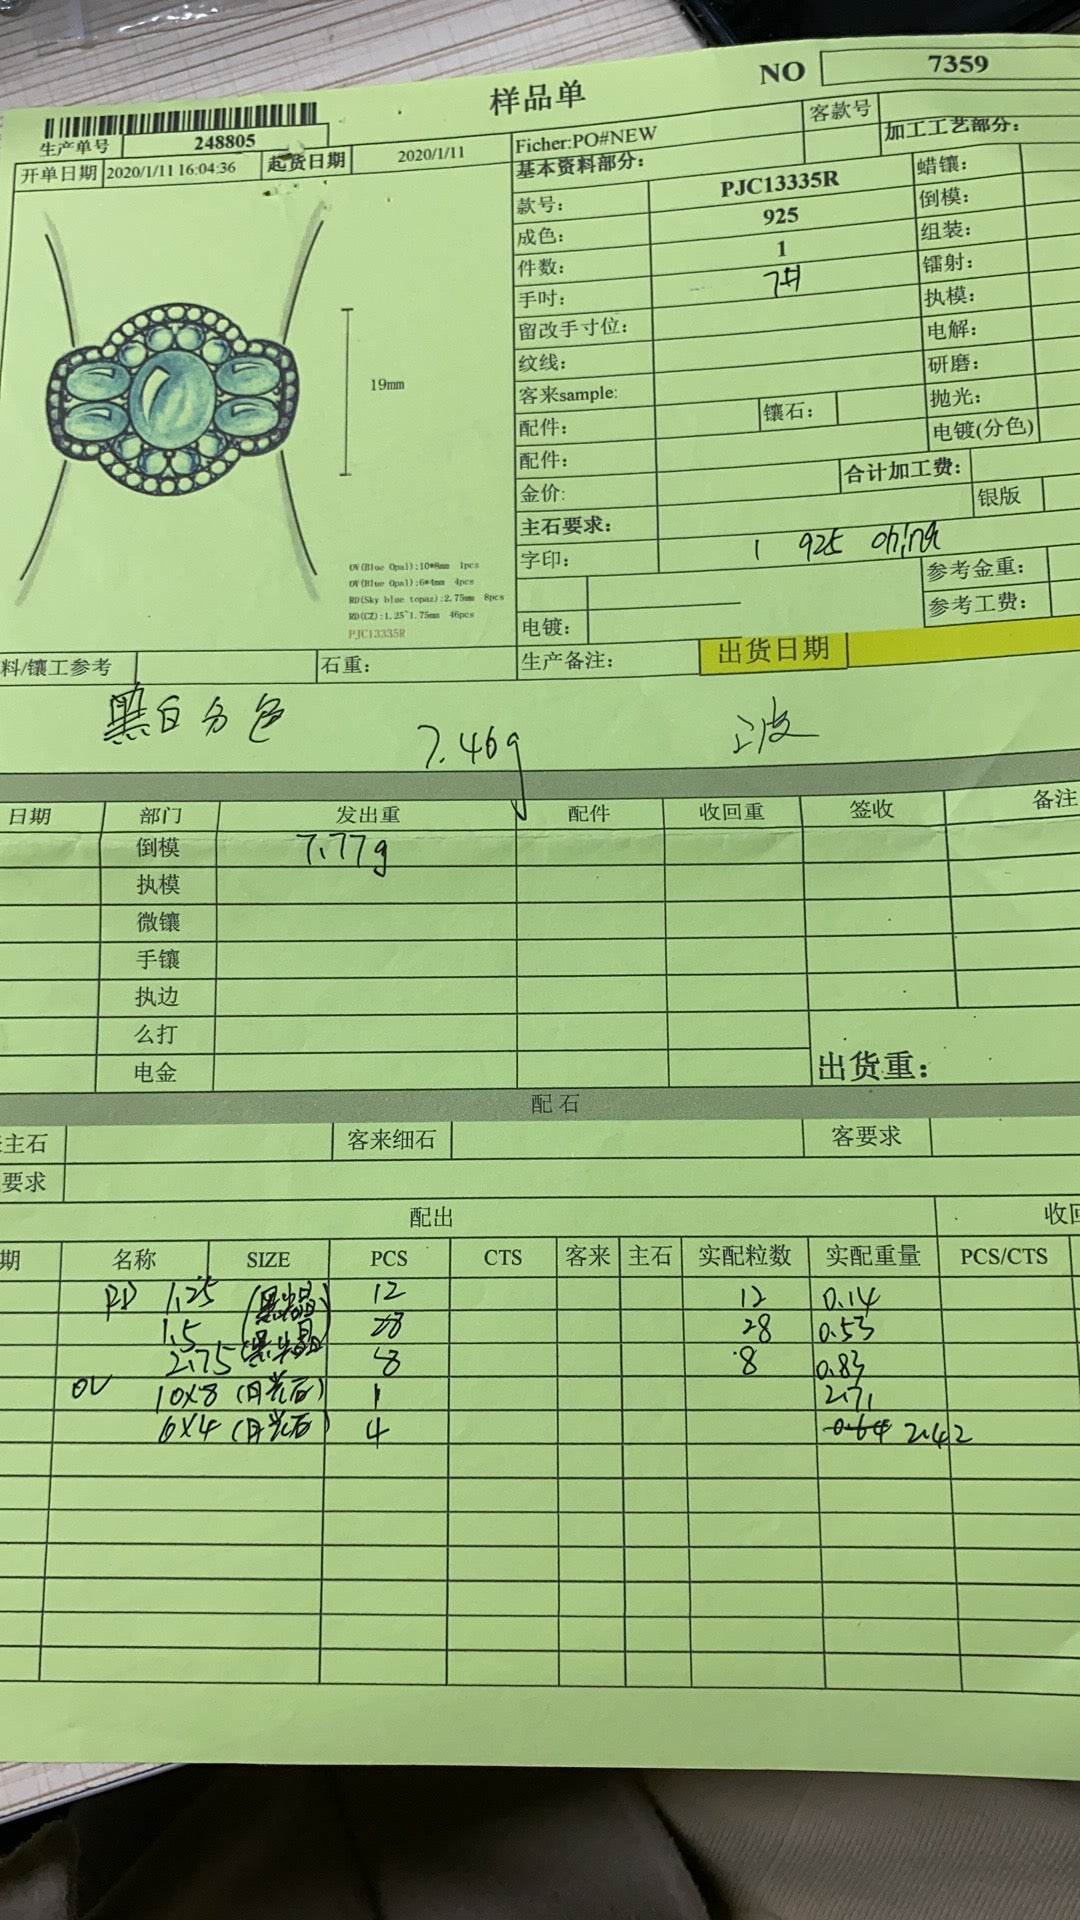 样品单
NO 7359
生产单号 248805
开单日期 2020/1/11 16:04:36 起货日期 2020/1/11
Ficher:PO#NEW 客款号
基本资料部分: 加工工艺部分:
款号: PJC13335R 蜡镶:
成色: 925 倒模:
件数: 1 组装:
手吋: 7# 镭射:
留改手寸位: 执模:
纹线: 电解:
客来sample: 研磨:
配件: 镶石: 抛光:
配件: 电镀(分色)
金价: 合计加工费:
主石要求: 银版
字印: 925 china
参考金重:
参考工费:
电镀:
19mm
OV(Blue Opal):10*8mm 1pcs
OV(Blue Opal):6*4mm 4pcs
RD(Sky blue topaz):2.75mm 8pcs
RD(CZ):1.25~1.75mm 46pcs
PJC13335R
料/镶工参考 石重: 生产备注: 出货日期
黑白分色 7.46g
日期 部门 发出重 配件 收回重 签收 备注
倒模 7.77g
执模
微镶
手镶
执边
么打
电金
出货重:
配石
主石 客来细石 客要求
要求
配出 收回
期 名称 SIZE PCS CTS 客来 主石 实配粒数 实配重量 PCS/CTS
RD 1.25 12 12 0.14
1.5 28 28 0.53
2.75 8 8 0.83
OV 10X8 (月光石) 1 2.71
6X4 (月光石) 4 0.64 2.42